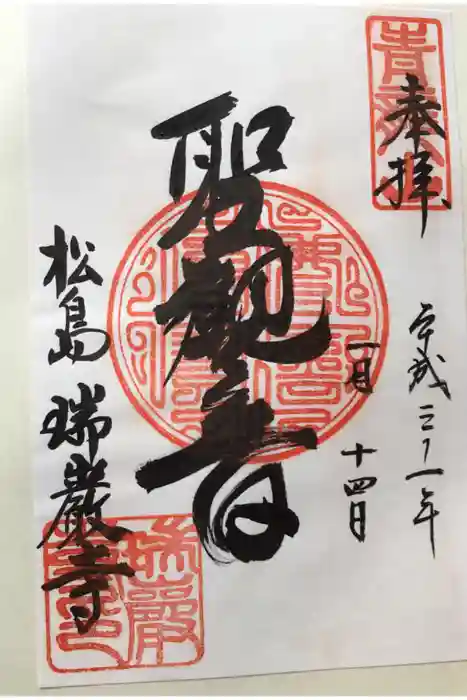 奉拝
青龍山
平成三十一年
一月
十四日
聖観音
松島 瑞巌寺